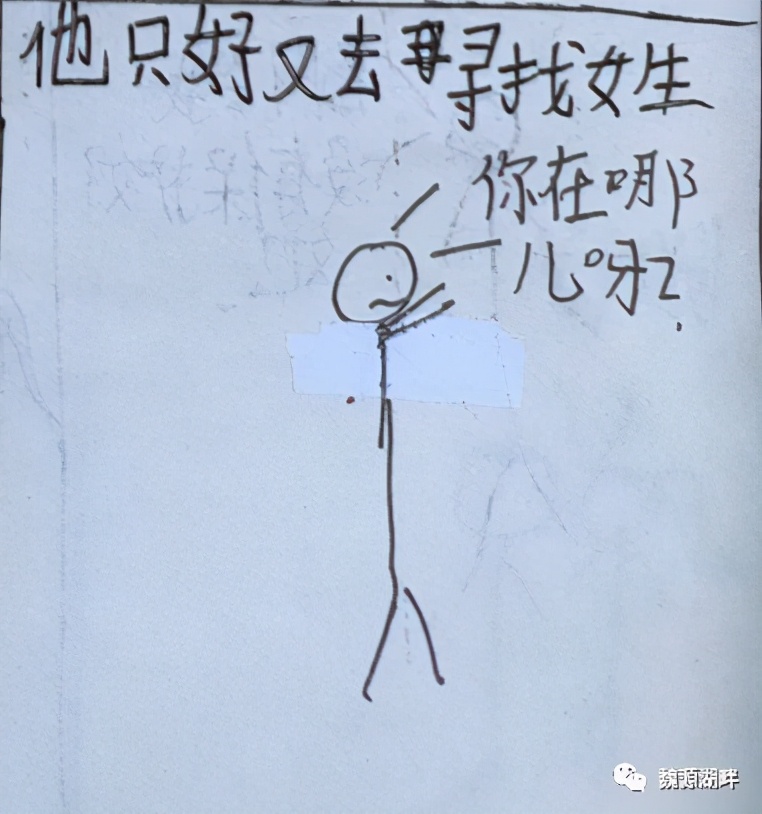 他只好又去寻找女生
你在哪
儿呀?
魏源湖畔